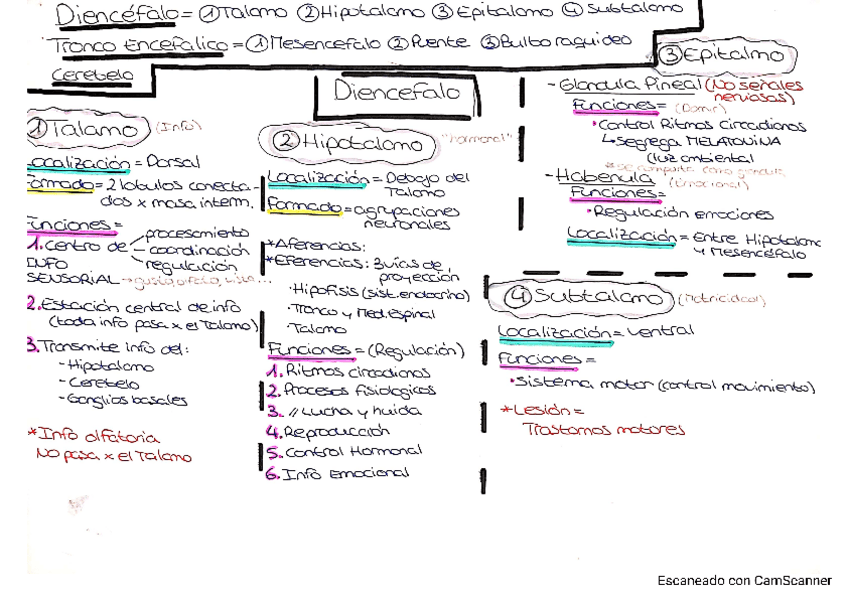 Diencéfalo = ① Talamo ② Hipotalamo ③ Epitalamo ④ Subtalamo
Tronco Encefalico = ① Mesencefalo ② Puente ③ Bulbo raquideo
Cerebelo
Diencefalo
① Talamo (Info)
Localización = Dorsal
Formado = 2 lobulos conecta-
dos x masa interm.
Funciones =
1. Centro de procesamiento
coordinación
regulación
INFO
SENSORIAL → gusto, olfato, vista...
2. Estación central de info
(toda info pasa x el Talamo)
3. Transmite info del:
- Hipotalamo
- Cerebelo
- Ganglios basales
* Info olfatoria
NO pasa x el Talamo
② Hipotalamo "hormonal"
Localización = Debajo del
Talamo
Formado = agrupaciones
neuronales
* Aferencias:
* Eferencias: 3 vias de
proyección
· Hipofisis (sist. endocrino)
· Tronco y Med. Espinal
· Talamo
Funciones = (Regulación)
1. Ritmos circadianos
2. Procesos fisiologicos
3. // Lucha y huida
4. Reproducción
5. Control Hormonal
6. Info Emocional
③ Epitalmo
- Glandula Pineal (No señales
nerviosas)
Funciones = (Dormir)
· Control Ritmos Circadianos
↳ segrega MELATONINA
(luz ambiental
* se comporta como glandula
- Habenula (Emocional)
Funciones =
· Regulación emociones
Localización = Entre Hipotalamo
y Mesencéfalo
④ Subtalamo (Motricidad)
Localización = Ventral
Funciones =
· Sistema motor (control movimiento)
* Lesión =
Trastornos motores
Escaneado con CamScanner